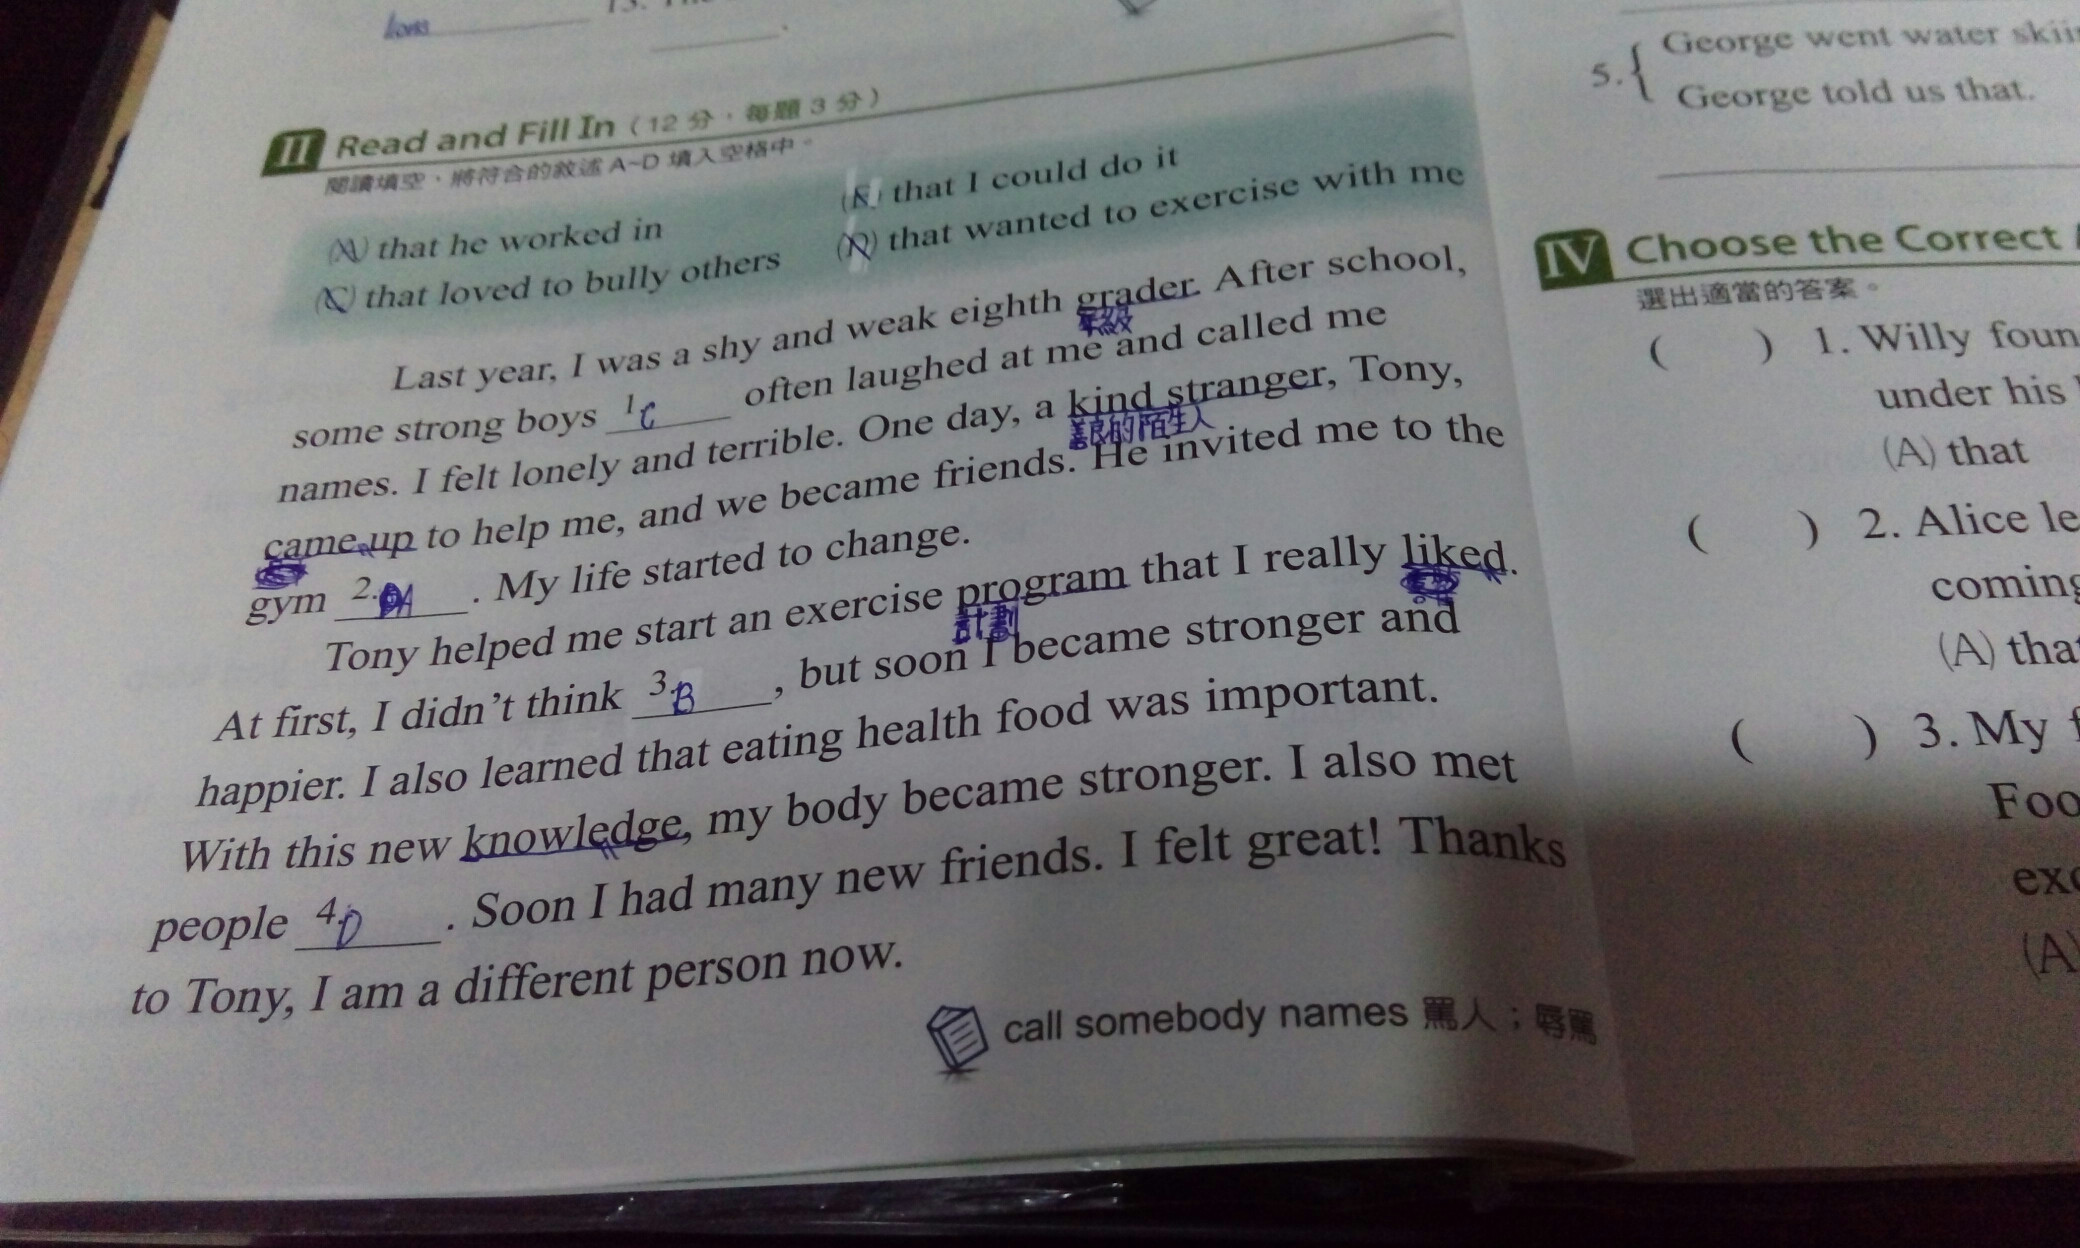 lions
13.
II Read and Fill In（12 分，每題 3 分）
閱讀填空，將符合的敘述 A~D 填入空格中。
(A) that he worked in
(B) that I could do it
(C) that loved to bully others
(D) that wanted to exercise with me
Last year, I was a shy and weak eighth grader. After school,
年級
some strong boys 1. C often laughed at me and called me
names. I felt lonely and terrible. One day, a kind stranger, Tony,
的陌生人
came up to help me, and we became friends. He invited me to the
gym 2. A . My life started to change.
Tony helped me start an exercise program that I really liked.
計劃
At first, I didn't think 3. B , but soon I became stronger and
happier. I also learned that eating health food was important.
With this new knowledge, my body became stronger. I also met
people 4. D . Soon I had many new friends. I felt great! Thanks
to Tony, I am a different person now.
call somebody names 罵人；辱罵
5. { George went water skii
George told us that.
IV Choose the Correct
選出適當的答案。
( ) 1. Willy foun
under his
(A) that
( ) 2. Alice le
coming
(A) tha
( ) 3. My f
Foo
exc
(A)